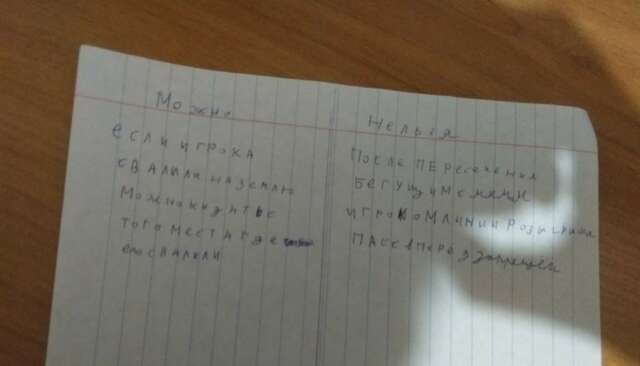 Можно
если игрока
свалили на землю
можно кидать с
того места где
его свалили
Нельзя
После пересечения
бегущим с мячом
игроком линии розыгрыша
пасс вперед запрещен